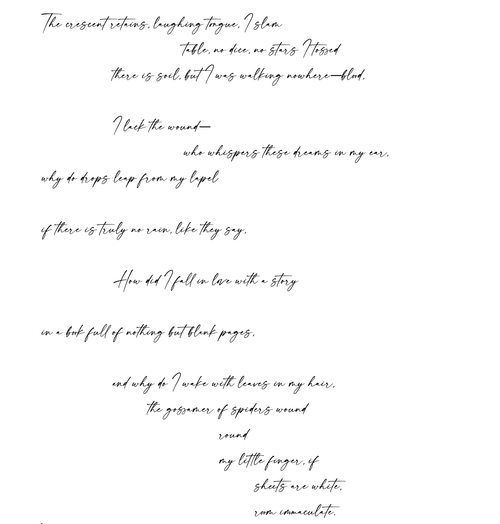 The crescent retains, laughing tongue, I slam
table, no dice, no stars I tossed
there is soil, but I was walking nowhere—blood,
I lack the wound—
who whispers these dreams in my ear,
why do drops leap from my lapel
if there is truly no rain, like they say,
How did I fall in love with a story
in a book full of nothing but blank pages,
and why do I wake with leaves in my hair,
the gossamer of spiders wound
round
my little finger, if
sheets are white,
room immaculate,